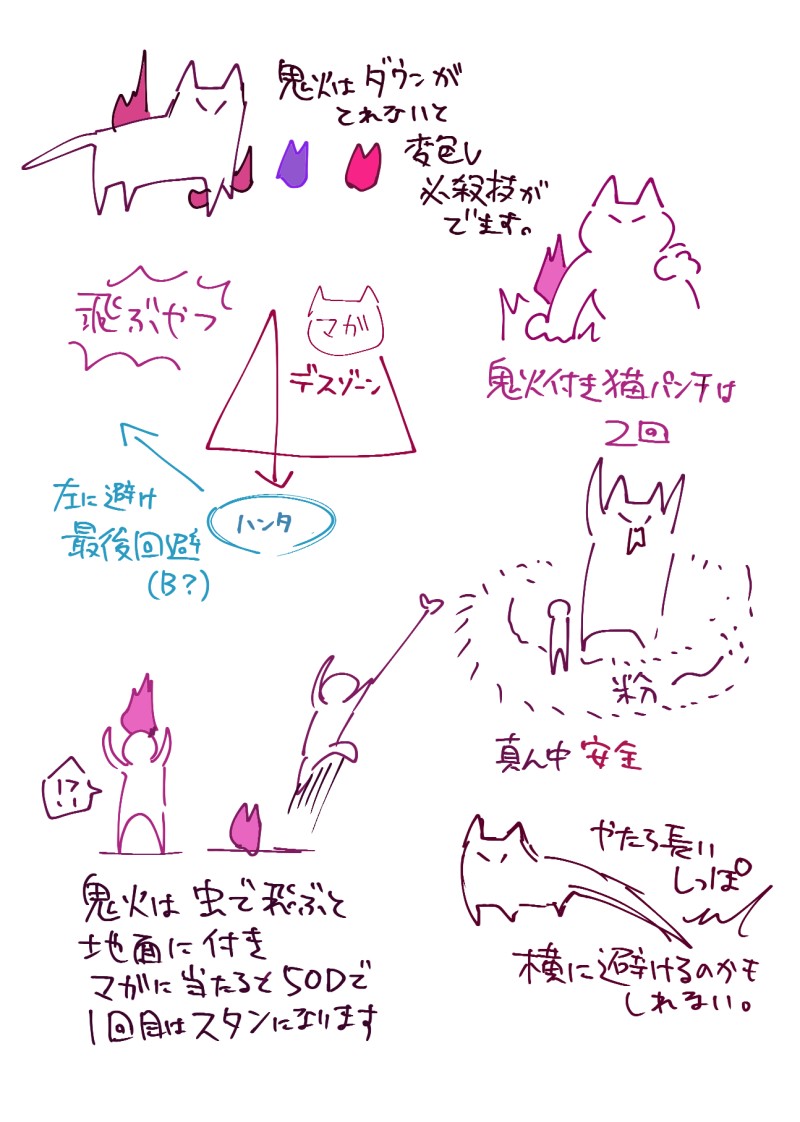 鬼火はダウンが
とれないと
変色し
必殺技が
でます。
飛ぶやつ
マガ
デスゾーン
鬼火付き猫パンチは
2回
左に避け
最後回避
(B?)
ハンタ
粉
真ん中 安全
!?
鬼火は虫で飛ぶと
地面に付き
マガに当たると50Dで
1回目はスタンになります
やたら長い
しっぽ
横に避けるのかも
しれない。